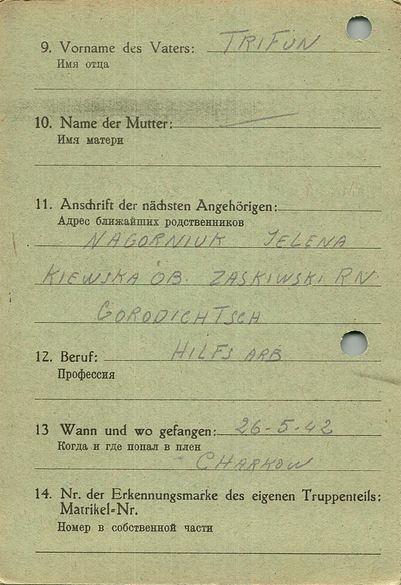 9. Vorname des Vaters: TRIFUN
Имя отца
10. Name der Mutter: —
Имя матери
11. Anschrift der nächsten Angehörigen:
Адрес ближайших родственников
NAGORNIUK JELENA
KIEWSKA OB. ZASKIWSKI RN
GORODICHTSCH
12. Beruf: HILFS ARB
Профессия
13 Wann und wo gefangen: 26-5-42
Когда и где попал в плен
CHARKOW
14. Nr. der Erkennungsmarke des eigenen Truppenteils:
Matrikel-Nr.
Номер в собственной части